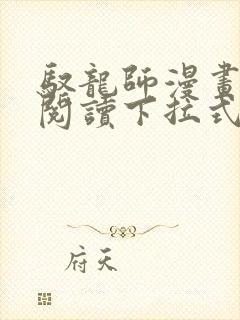 馭龍師漫畫
閱讀下拉式
府天